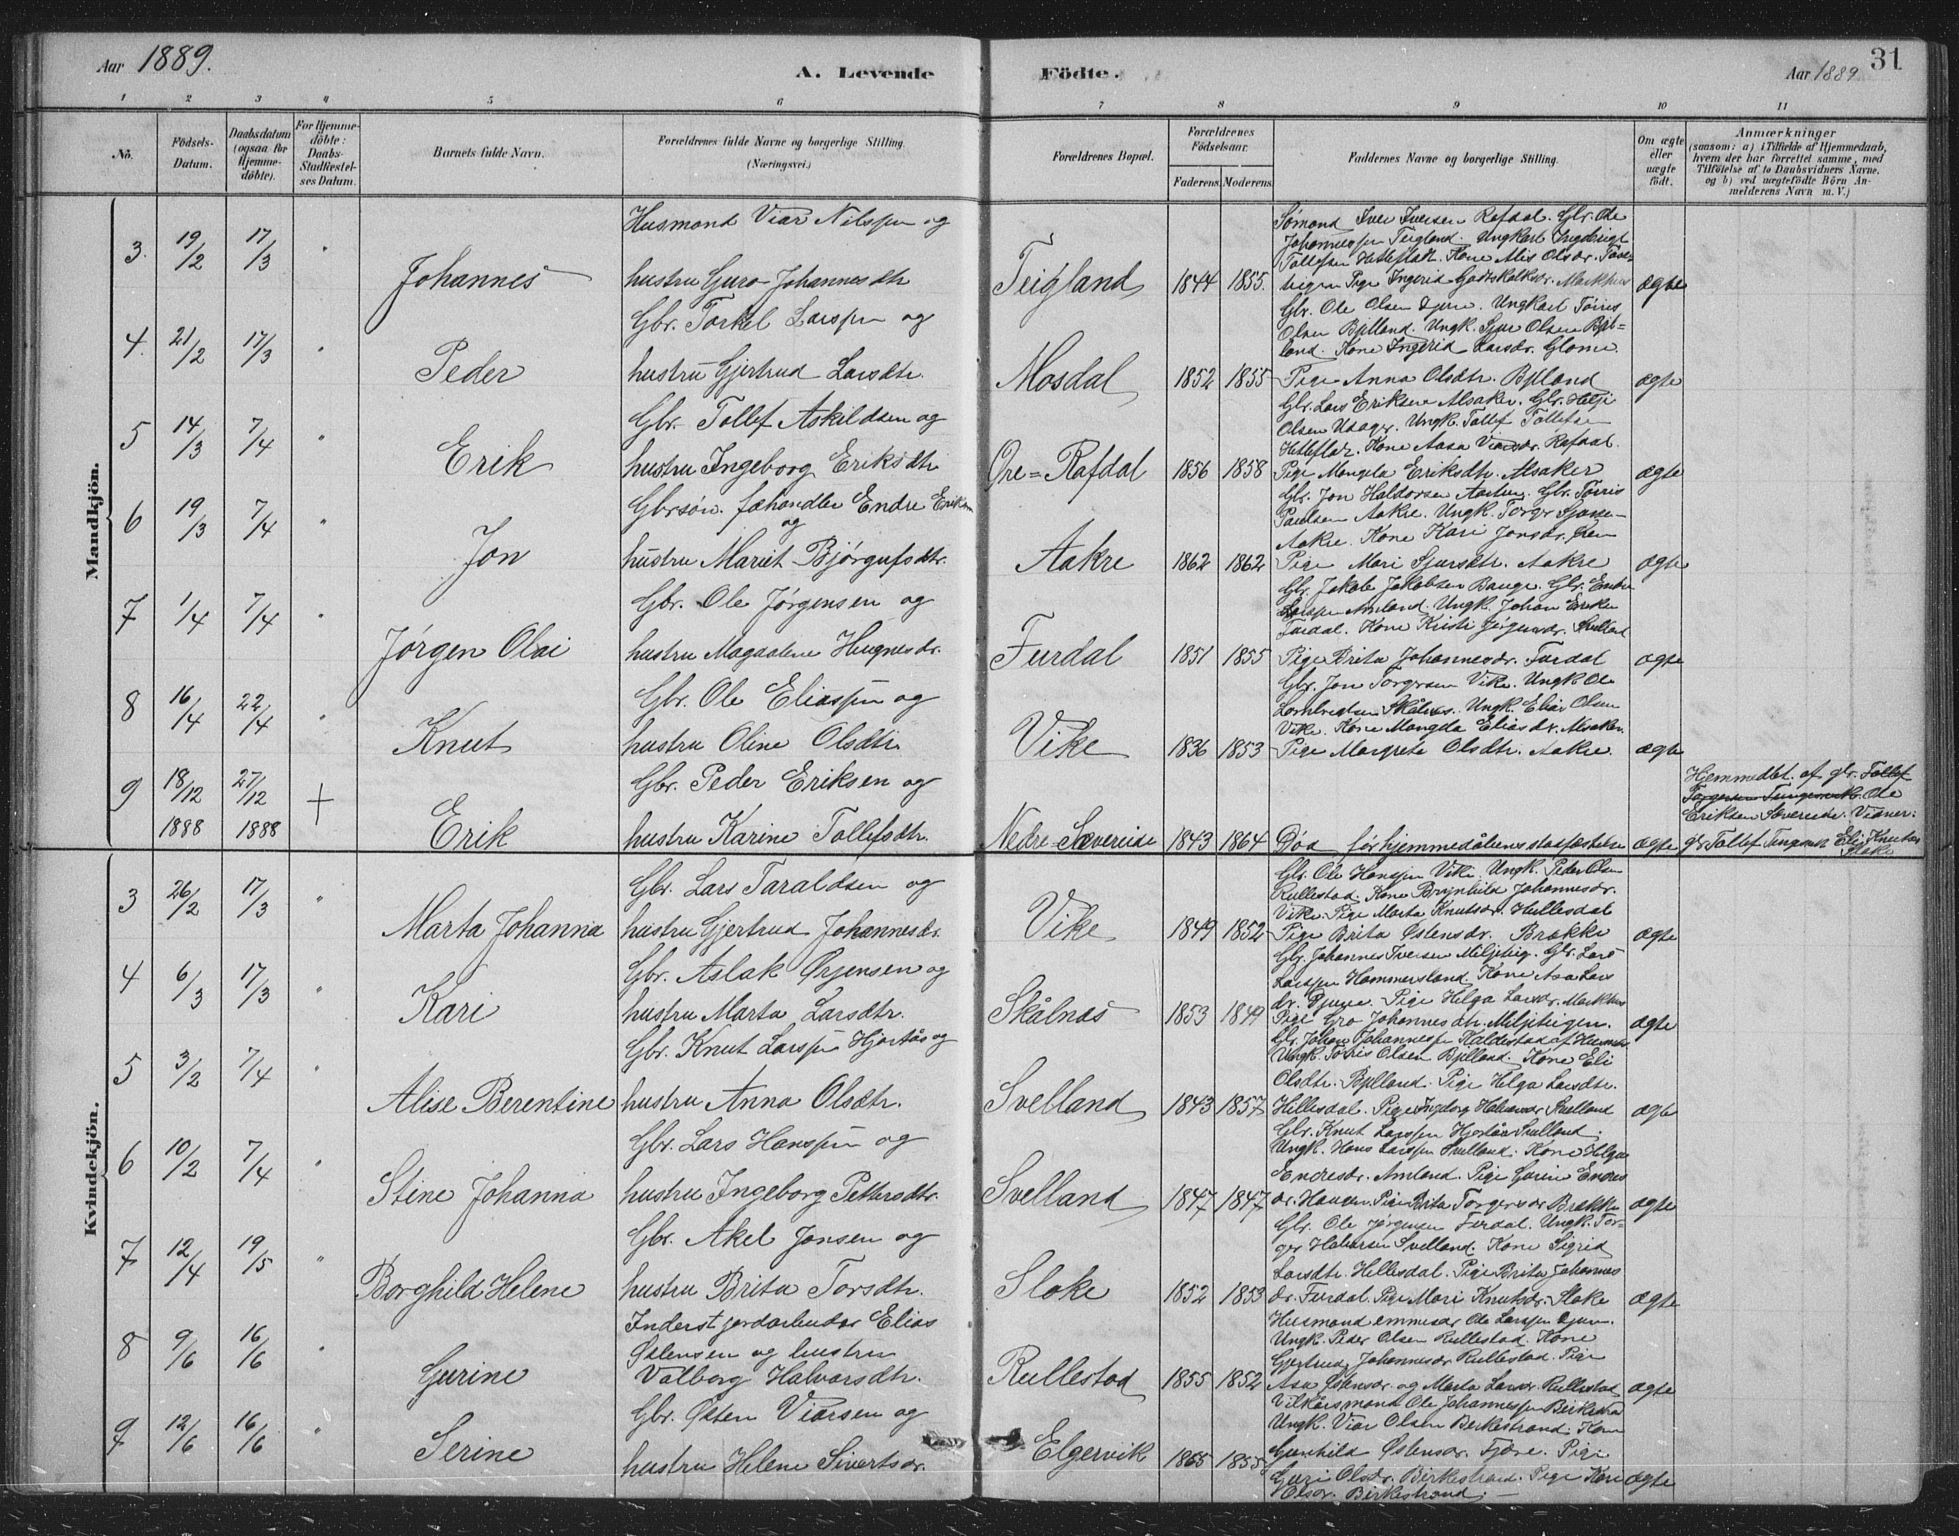 Aar 1889.
A. Levende Födte.
Aar 1889
31
1 2 3 4 5 6 7 8 9 10 11
No.
Födsels-Datum.
Daabsdatum (ogsaa for Hjemme-döbte).
For Hjemme-döbte: Daabs-Stadfæstel-ses Datum.
Barnets fulde Navn.
Forældrenes fulde Navne og borgerlige Stilling. (Næringsvei.)
Forældrenes Bopæl.
Forældrenes Födselsaar.
Faderens. Moderens.
Faddernes Navne og borgerlige Stilling.
Om ægte eller uægte födt.
Anmærkninger
(saasom: a) i Tilfælde af Hjemmedaab,
hvem der har forrettet samme, med
Tilföielse af to Daabsvidners Navne.
og b) ved uægtefödte Börn An-
melderens Navn m. V.)
Mandkjön.
3. 19/2 17/3 " Johannes
Husmand Viar Nilssen og
hustru Guro Johannesdtr
Teigland 1844 1855.
Sømand Iver Iversen Rafdal. Gbr. Ole
Johannessen Teigland. Ungkarl Ingebrigt
Tollefsen Hetleflaat. Kone Alis Olsdr.
Pige Ingerid Godtskalksdr. Markhus
ægte
4. 21/2 17/3 " Peder
Gbr. Torkel Larssen og
hustru Gjertrud Larsdtr.
Mosdal 1852 1855
Gbr. Ole Olsen Djure. Ungkarl Tørris
Olsen Bjelland. Ungk. Sjur Olsen Bjel-
land. Kone Ingerid Larsdr. Glome.
Pige Anna Olsdtr. Bjelland
ægte
5 14/3 7/4 " Erik
Gbr. Tollef Askildsen og
hustru Ingeborg Eriksdtr
Øre=Rafdal 1856 1858
Gbr. Lars Eriksen Alsaker. Gbr. Helje
Olsen Usager. Ungk. Tollef Tollefsen
Hetleflaat. Kone Aasa Viarsdr. Rafdal.
Pige Mangela Eriksdtr. Alsaker
ægte
6 19/3 7/4 " Jon
Gbrsøn. fæhandler Endre Eriksen
og
hustru Mariet Bjørgufsdtr.
Aakre 1862 1862
Gbr. Jon Haldorsen Aarten. Gbr. Tørris
Paulsen Aakre. Ungk. Torger
Aakre. Kone Kari Jonsdr.
Pige Mari Sjursdtr. Aakre
ægte
7 1/4 7/4 " Jørgen Olai
Gbr. Ole Jørgensen og
hustru Magdalene Haugnesdr.
Furdal 1851 1855
Gbr. Jakob Jakobsen Bauge. Gbr. Endre
Larssen Amland. Ungk. Johan Eriksen
Furdal. Kone Kristi Jørgensdr. Svelland
Pige Brita Johannesdr. Furdal
ægte
8 16/4 22/4 " Knut
Gbr. Ole Eliassen og
hustru Oline Olsdtr.
Vike 1836 1853
Gbr. Jon Torgersen Vike. Ungk Ole
Lambregtsen Skålnes. Ungk. Elias Olsen
Vike. Kone Mangda Eliasdr. Alsaker.
Pige Margrete Olsdtr. Aakre.
ægte
9 18/12 1888 27/12 1888 + Erik
Gbr. Peder Eriksen og
hustru Karine Tollefsdtr.
Nedre=Sævereide 1843 1864
Død før hjemmedåbens stadfæstelse
ægte
Hjemmedbt. af gbr. Tollef
Torgersen Tungesvik. Ole
Eriksen Sævereide. Vidner:
gbr Tollef Tungesvik Eli Knutsdr
Sloke
Kvindekjön.
3 26/2 17/3 " Marta Johanna
Gbr. Lars Taraldsen og
hustru Gjertrud Johannesdr.
Vike 1849 1852
Gbr. Ole Hanssen Vike. Ungk. Peder Olsen
Rullestad. Kone Brynhild Johannesdr.
Vike. Pige Marta Knutsdr. Hillesdal
Pige Brita Østensdr. Brække
ægte
4 6/3 17/3 " Kari
Gbr. Aslak Ørjensen og
hustru Marta Larsdtr.
Skålnæs 1853 1849
Gbr. Johannes Iversen Miljeteig. Gbr. Lars
Larssen Hammersland. Kone Asa Lars
dr. Djure. Pige Helga Larsdr. Markhus
Pige Gro Johannesdtr. Miljeteigen.
ægte
5 3/2 7/4 " Alise Berentine
Gbr. Knut Larssen Hjortås og
hustru Anna Olsdtr.
Svelland 1843 1857
Gbr. Johan Johannessen Kaldestad af
Ungk. Tørris Olsen Bjelland. Kone Eli
Olsdtr. Bjelland. Pige Helga Larsdtr.
Hillesdal. Pige Ingeborg Halvorsdr Svelland
ægte
6 10/2 7/4 " Stine Johanna
Gbr. Lars Hanssen og
hustru Ingeborg Pettersdtr.
Svelland 1847 1847
Gbr. Knut Larssen Hjortås Svelland.
Ungk. Hans Larssen Svelland. Kone Helga
Endresdr. Amland. Pige Gurine Endres
dr. Haugen. Pige Brita Torgersdr Brække
ægte
7 12/4 19/5 " Borghild Helene
Gbr. Akel Jonsen og
hustru Brita Torsdtr.
Sloke 1852 1853
Gbr. Ole Jørgensen Furdal. Ungk. Tor-
ger Halvorsen Svelland. Kone Sigrid
Larsdtr. Hillesdal. Pige Brita Johannes
dr. Furdal. Pige Mari Knutsdr. Sloke
ægte
8 9/6 16/6 " Gurine
Inderst jordarbeider Elias
Østensen og hustru
Valborg Halvorsdtr.
Rullestad 1855 1852
Husmand Ole Larssen Djure.
Ungk. Peder Olsen Rullestad. Kone
Gjertrud Johannesdr Rullestad. Pige
Asa Østensdr. og Marta Larsdr Rullestad
ægte
9 12/6 16/6 " Serine
Gbr. Østen Viarsen og
hustru Helene Sivertsdr.
Elgervik 1865 1855
Vilkårsmand Ole Johannessen Birkestrand
Ungk. Viar Olsen Berkestrand. Kone
Gunhild Østensdr. Fjære. Pige
Guri Olsdr. Birkestrand. Pige Kari
Olsdr. Birkestrand. —
ægte